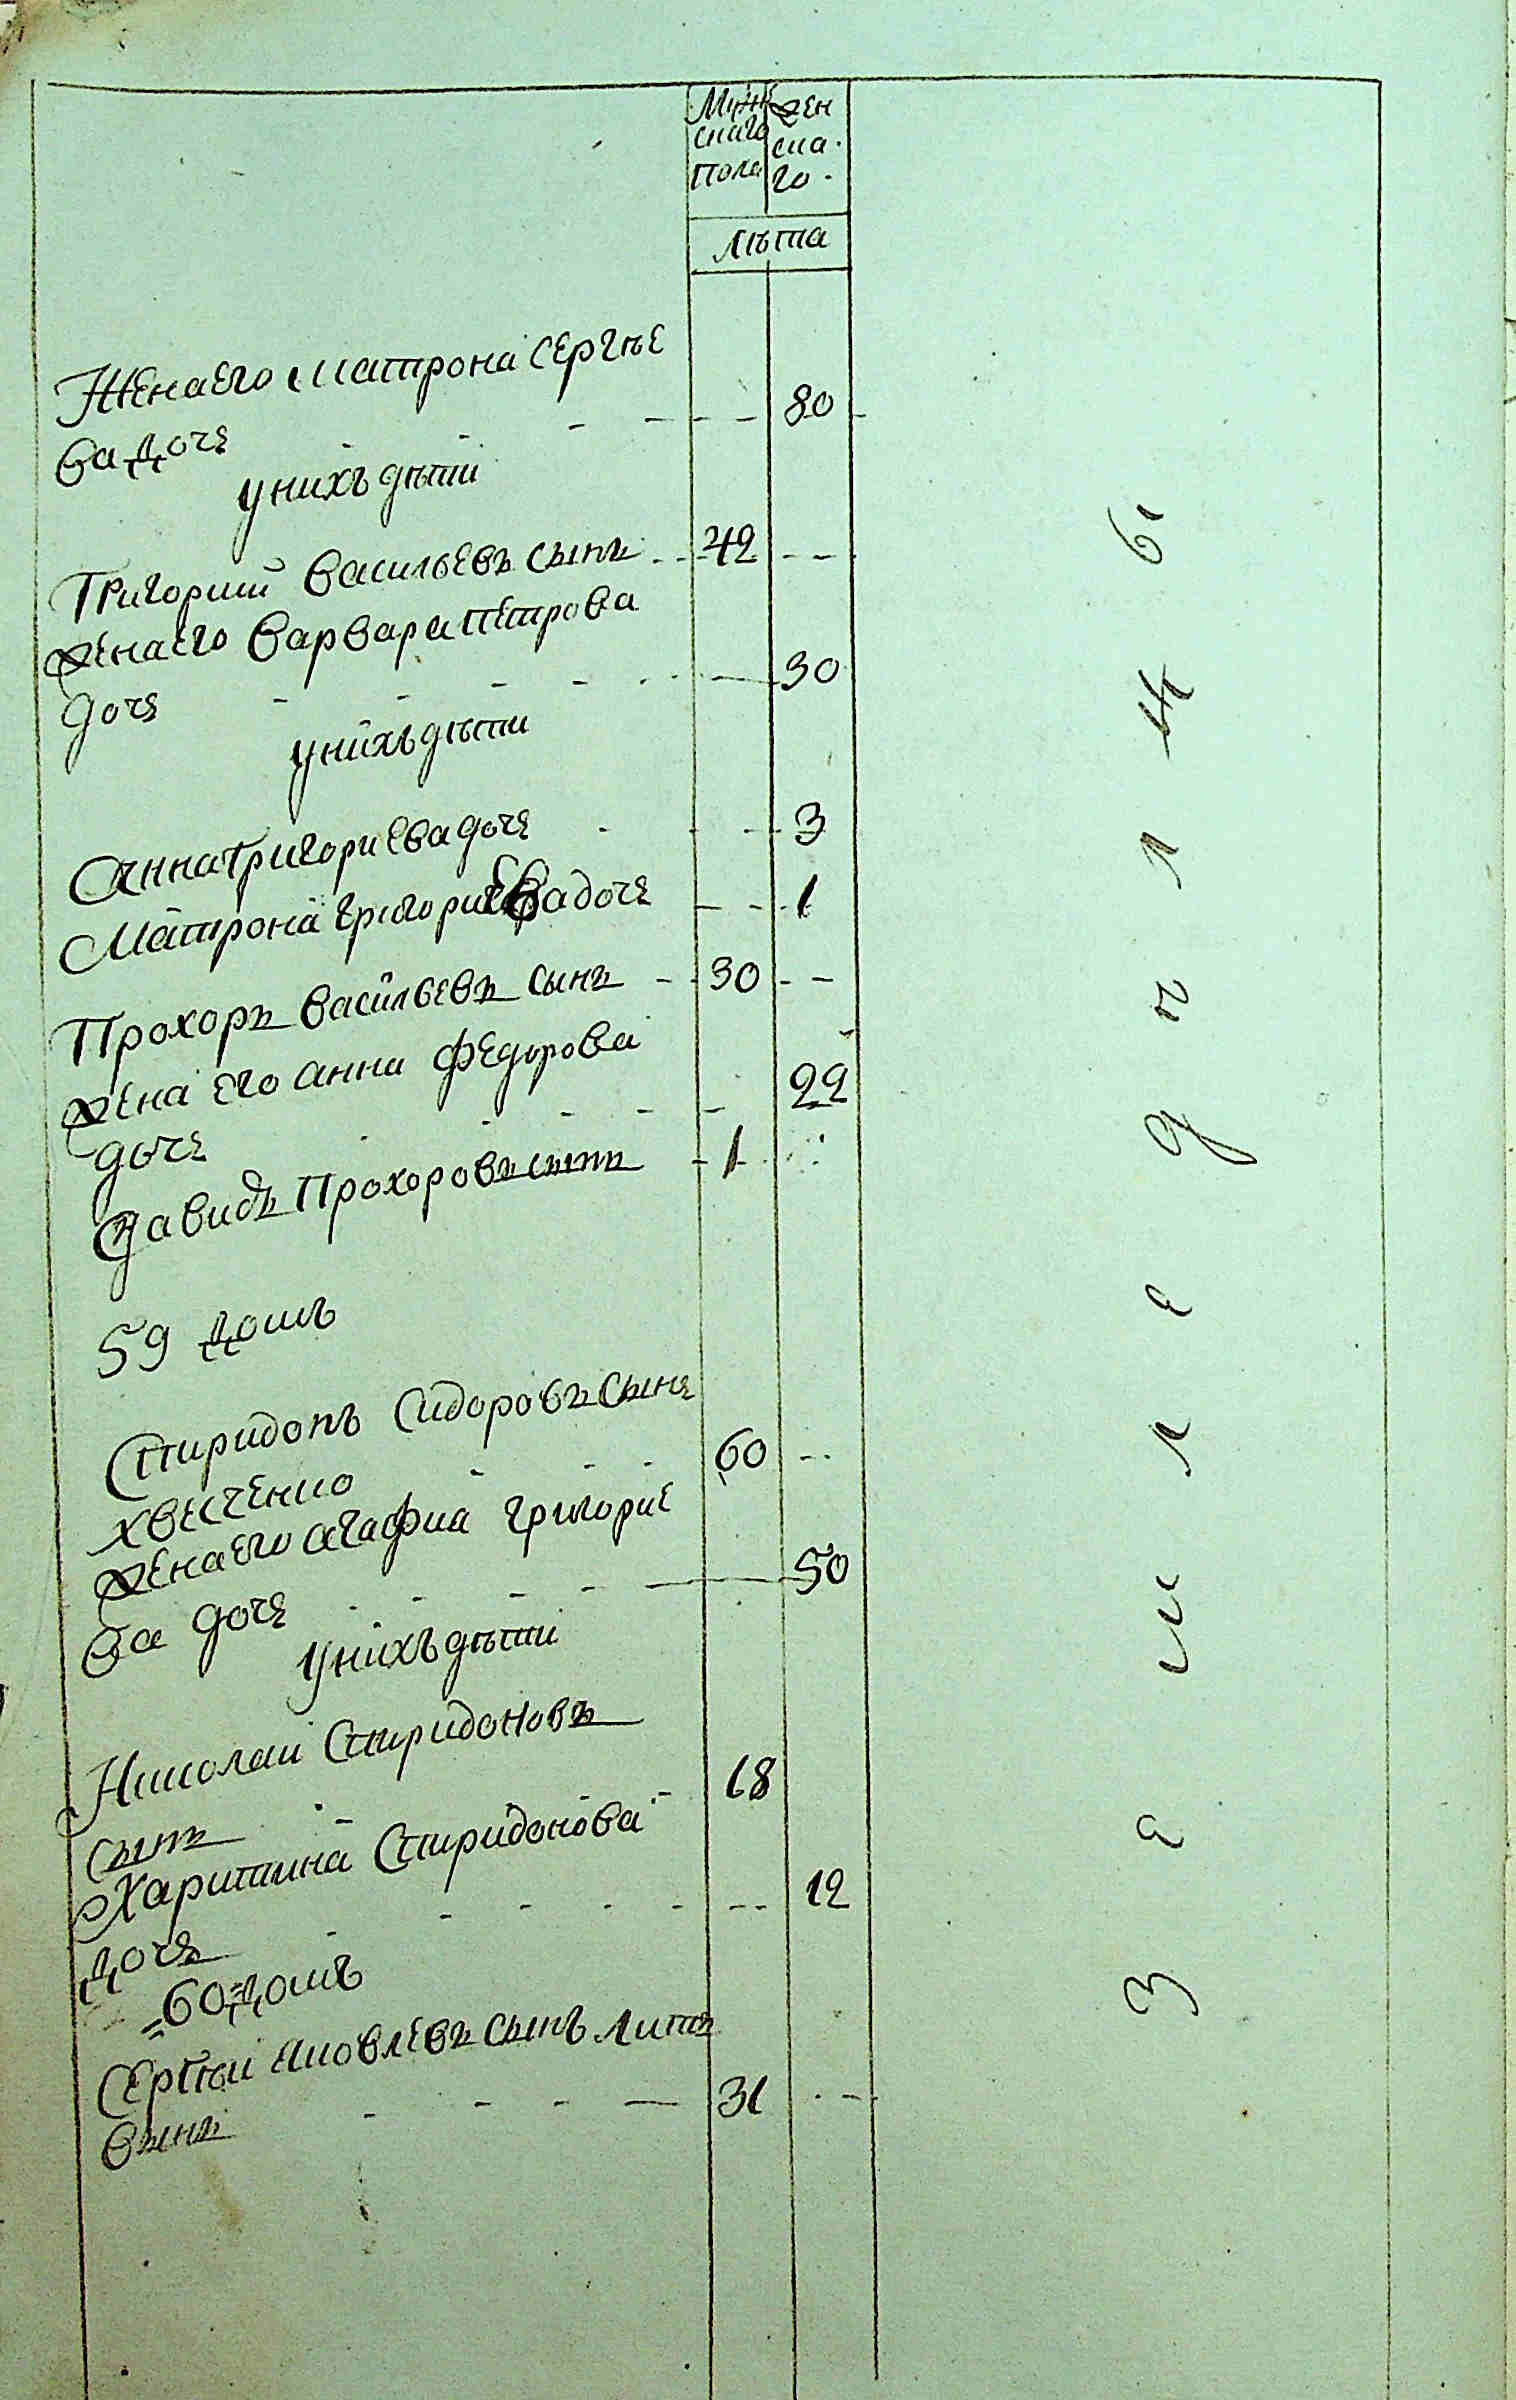 Муж
скаго
пола
жен
ска.
го.
лѣта
Жена его Матрона Сергѣе
ва дочь 80
у нихъ дѣти
Григории Васильевъ сынъ 42
жена его Варвара Петрова
дочь 30
у нихъ дѣти
Анна Григориева дочь 3
Матрона Григориева дочь 1
Прохоръ Васильевъ сынъ 30
жена его Анна Федорова
дочь 22
Давидъ Прохоровъ сынъ 1
59 домъ
Спиридонъ Сидоровъ сынъ
60
жена его Агафиа Григорие
ва дочь 50
у нихъ дѣти
Николаи Спиридоновъ
сынъ 18
Харитина Спиридонова
дочь 12
60 домъ
Сергѣи Яковлевъ сынъ Литв
31
земледѣлцы